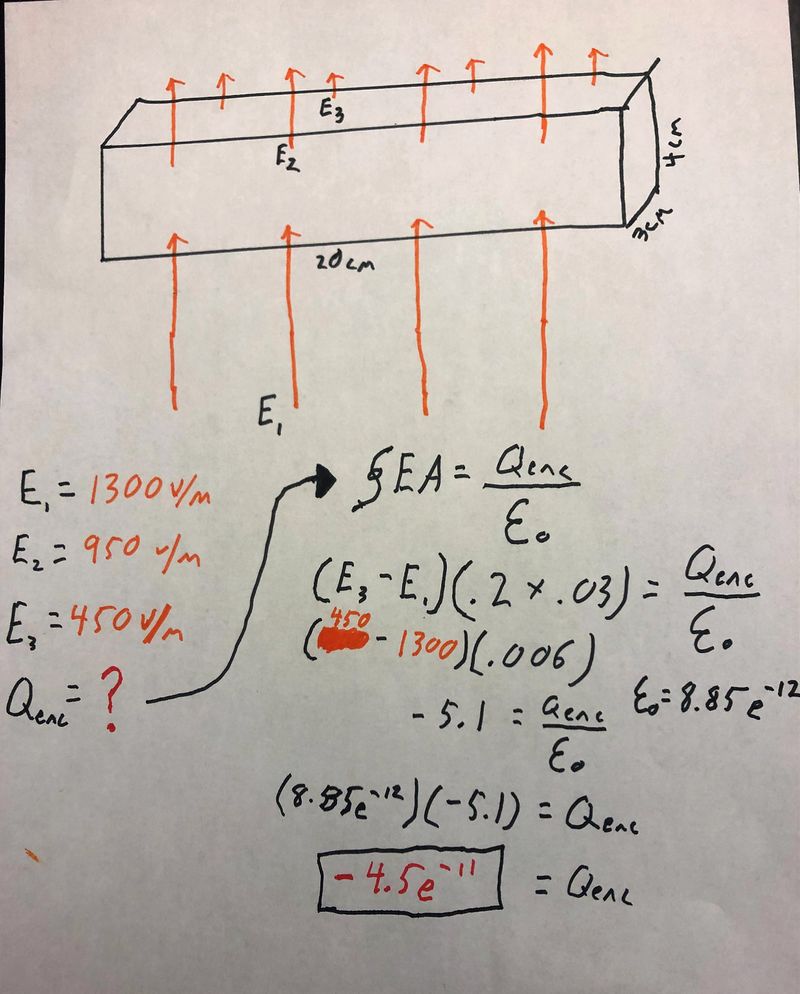 E₃
E₂
4cm
3cm
20cm
E₁
E₁ = 1300 v/m
E₂ = 950 v/m
E₃ = 450 v/m
Qenc = ?
∮EA = Qenc/ε₀
(E₃ - E₁)(.2 × .03) = Qenc/ε₀
(450 - 1300)(.006)
- 5.1 = Qenc/ε₀
ε₀ = 8.85e⁻¹²
(8.85e⁻¹²)(-5.1) = Qenc
- 4.5e⁻¹¹ = Qenc